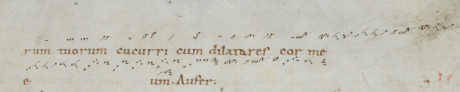 rum tuorum cucurri cum dilatares cor me
um. Aufer.